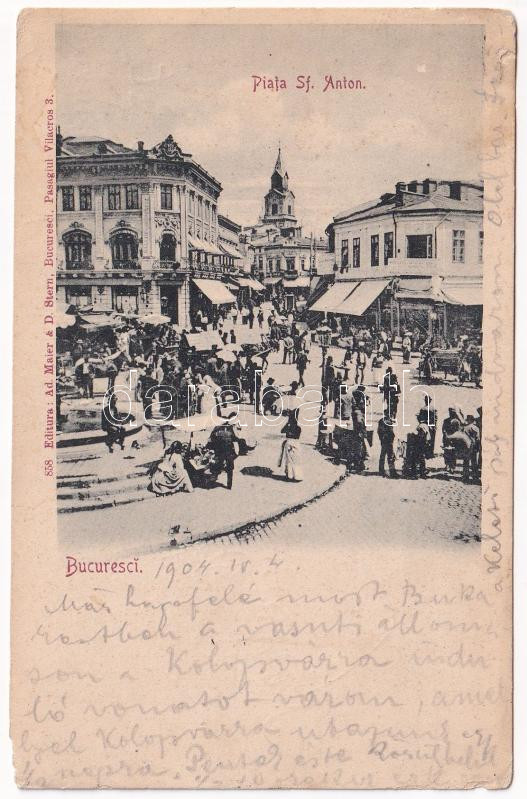 Piața Sf. Anton.
858 Editura: Ad. Maier & D. Stern, Bucuresci, Pasagiul Vilacros 3.
darabanth
Bucurescĭ. 1904. IV. 4.
Már hazafelé most Buka
restben a vasuti állomá
son a Kolozsvárra indu
ló vonatot várom, amel
lyel Kolozsvárra utazunk
napra. Péntek este
a Keleti pályaudvaron